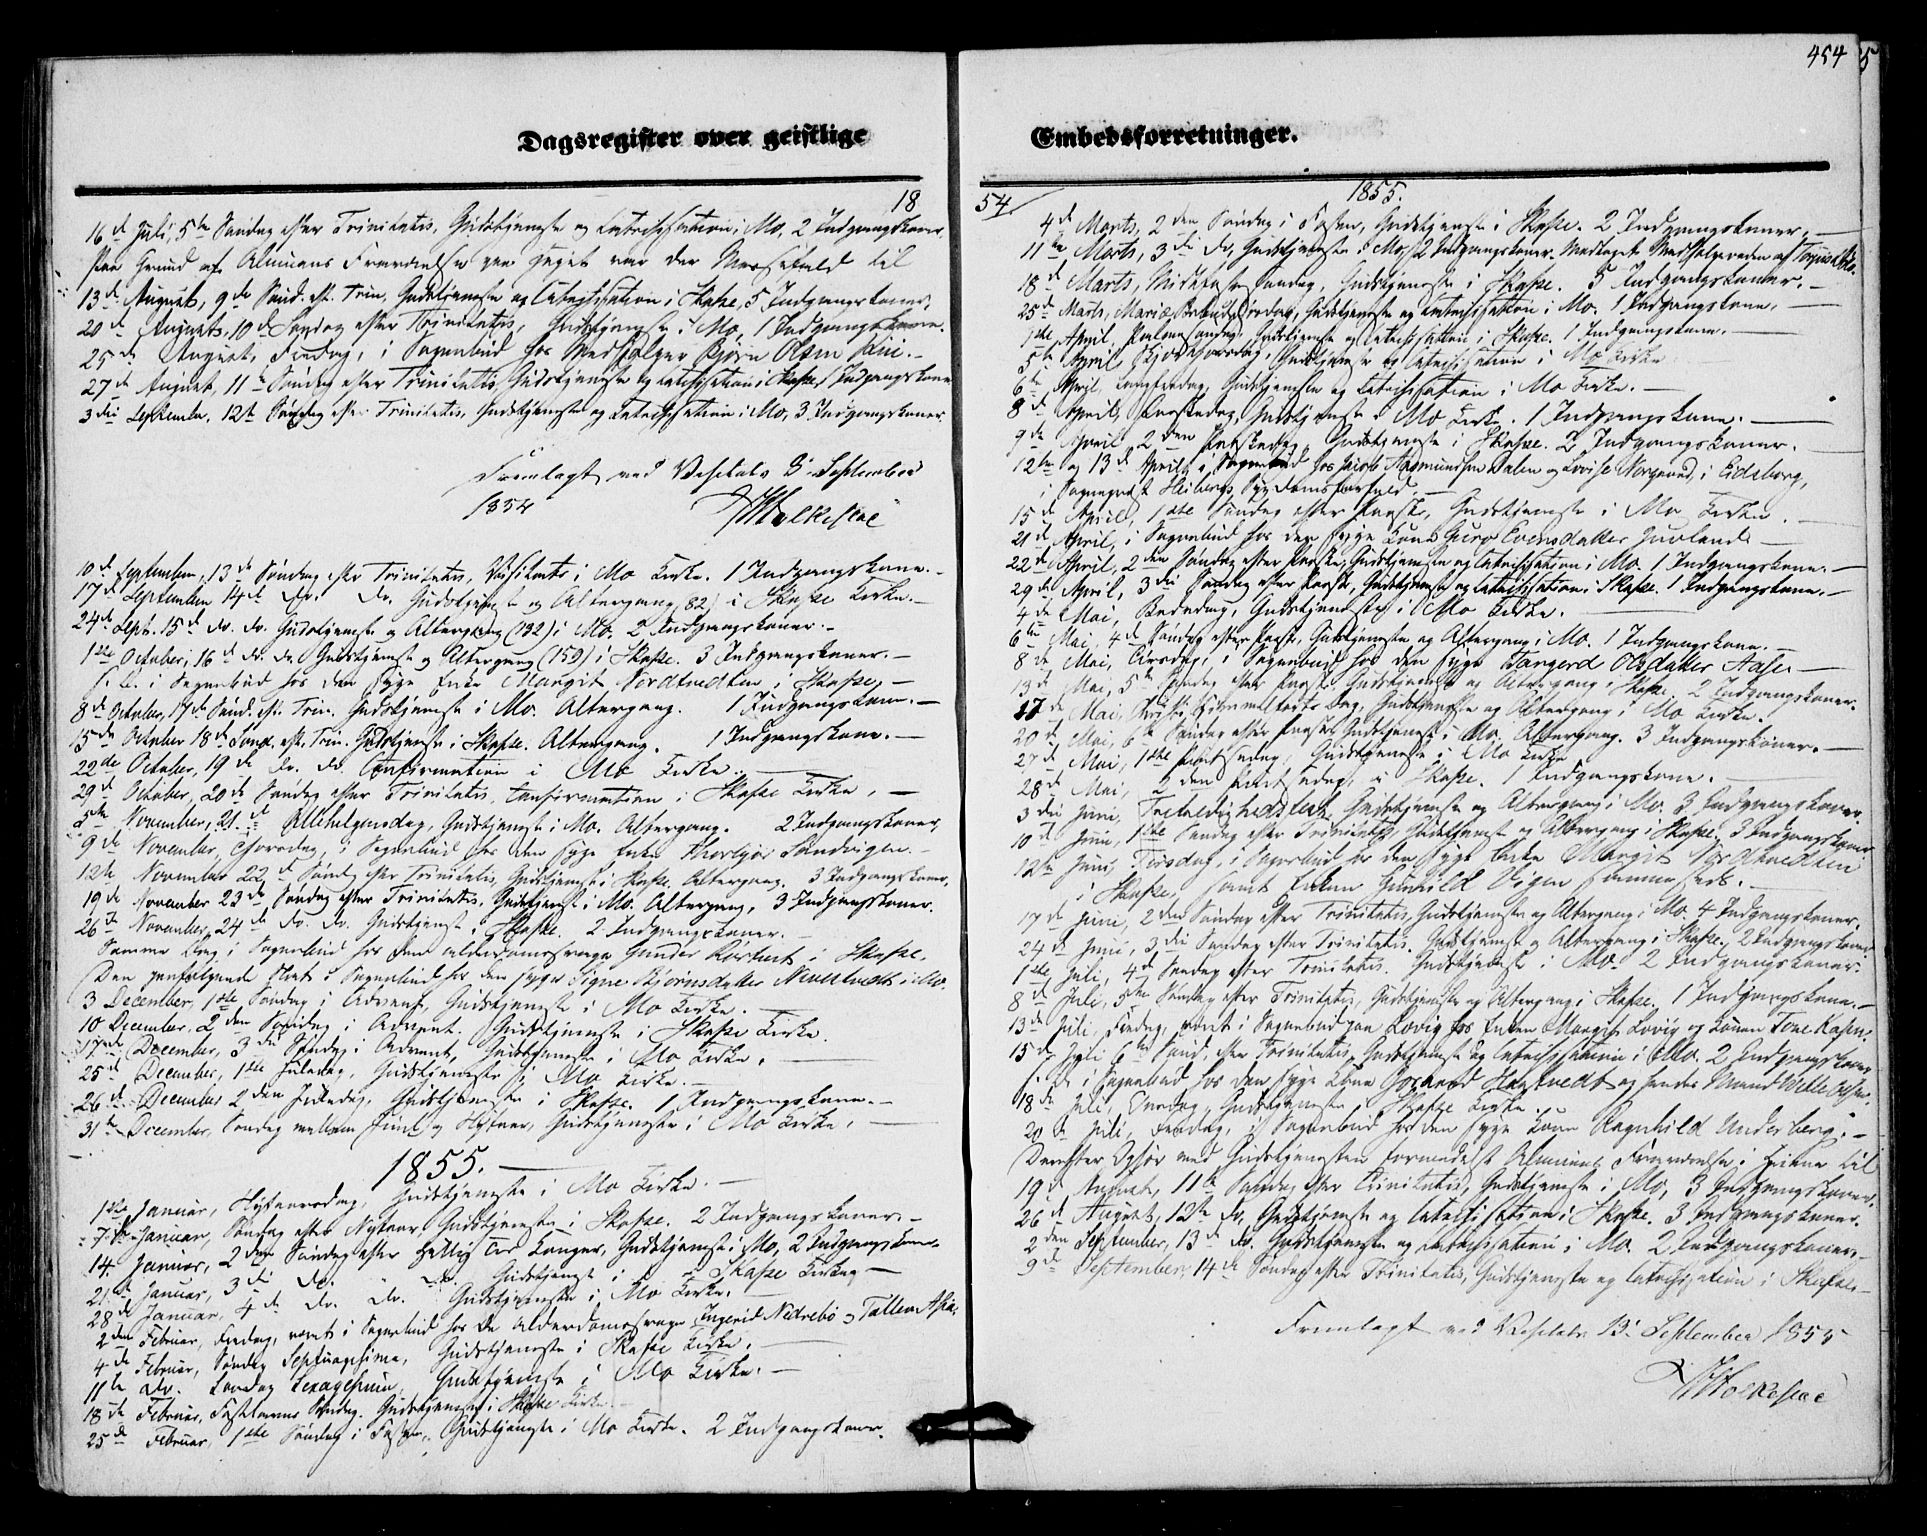 454 5
Dagsregister over geistlige Embedsforretninger.
18
16de Juli, 5te Søndag efter Trinitatis, Gudstjeneste og Catechisation i Mo, 2 Indgangskoner.
Paa Grund af Almuens Fraværelse paa var der Messefald til
13de August, 9de Sønd. eft. Trin. Gudstjeneste og Catechisation i Skafse, 5 Indgangskoner.
20de Augusts, 10de Søndag efter Trinitatis, Gudstjeneste i Mo, 1 Indgangskone.
25de August, Fredag, i Sognebud hos Medhjelper Bjørn Olsen
27de August, 11te Søndag efter Trinitatis Gudstjeneste og Catechisation i Skafse, 1 Indgangskone
3die September, 12te Søndag efter Trinitatis, Gudstjeneste og Catechisation i Mo, 3 Indgangskoner.
Fremlagt ved Visitats 8 September
1854
10de September, 13de Søndag efter Trinitatis, Visitats i Mo Kirke. 1 Indgangskone.
17de September 14de do. do. Gudstjeneste og Altergang (82) i Skafse Kirke.
24de Sept. 15de do. do. Gudstjeneste og Altergang (132) i Mo. 2 Indgangskoner.
1ste October, 16de do. do. Gudstjeneste og Altergang (159) i Skafse. 3 Indgangskoner.
s. D. i Sognebud hos den syge Enke Margit Nordtvedten i Skafse,
8de October, 17de Sønd. eft. Trin. Gudstjeneste i Mo. Altergang. 1 Indgangskone.
15de October 18de Sønd. eft. Trin. Gudstjeneste i Skafse. Altergang. 1 Indgangskone.
22de October, 19de do. do. Confirmation i Mo Kirke.
29de October, 20de Søndag efter Trinitatis, Confirmation i Skafse Kirke.
5te November, 21de Allehelgensdag, Gudstjeneste i Mo. Altergang. 2 Indgangskoner,
9de November, Thorsdag, i Sognebud hos den syge Enke Thorbjør Sandvigen.
12te November 22de Sønd. efter Trinitatis, Gudstjeneste i Skafse. Altergang. 3 Indgangskoner.
19de November 23de Søndag efter Trinitatis. Gudstjeneste i Mo. Altergang, 3 Indgangskoner.
26te November, 24de do. do. Gudstjeneste i Skafse. 2 Indgangskoner.
Samme Dag i Sognebud hos den alderdomssvage Gunder i Skafse.
Den paafølgende Nat i Sognebud hos den syge Signe Bjørnsdatter i Mo.
3 December, 1ste Søndag i Advent, Gudstjeneste i Mo Kirke.
10 December, 2den Søndag i Advent. Gudstjeneste i Skafse Kirke.
17de December, 3die Søndag i Advent, Gudstjeneste i Mo Kirke.
25de December, 1ste Juledag, Gudstjeneste i Mo Kirke.
26de December 2den Juledag, Gudstjeneste i Skafse. 1 Indgangskone.
31te December, Søndag mellem Juul og Nytaar, Gudstjeneste i Mo Kirke.
1855.
1ste Januar, Nytaarsdag, Gudstjeneste i Mo Kirke.
7de Januar, Søndag efter Nytaar, Gudstjeneste i Skafse. 2 Indgangskoner.
14. Januar, 2den Søndag efter Hellig tre Konger, Gudstjeneste i Mo, 2 Indgangskoner.
21de Januar, 3die do. do. Gudstjeneste i Skafse Kirke
28de Januar, 4de do. do. Gudstjeneste i Mo Kirke.
2den Februar, Fredag, været i Sognebud hos de alderdomssvage Ingerid Nedrebø og
4de Februar, Søndag Septuagesima, Gudstjeneste i Skafse Kirke.
11te do. Søndag Sexagesima, Gudstjeneste i Mo Kirke.
18de Februar, Fastelavns Søndag. Gudstjeneste i Skafse Kirke.
25de Februar, 1ste Søndag i Fasten, Gudstjeneste i Mo Kirke. 2 Indgangskoner.
54.
1855.
4de Marts, 2den Søndag i Fasten, Gudstjeneste i Skafse. 2 Indgangskoner.
11te Marts, 3die do, Gudstjeneste i Mo, 2 Indgangskoner. Modtaget Medhjelpereden af
18de Marts, Midfaste Søndag, Gudstjeneste i Skafse. 5 Indgangskoner.
25de Marts, Mariæ Bebudelsesdag, Gudstjeneste og Catechisation i Mo. 1 Indgangskone.
1ste April, Palmesøndag, Gudstjeneste og Catechisation i Skafse. 1 Indgangskone.
5te April, Skjærthorsdag, Gudstjeneste og Catechisation i Mo Kirke
6te April, Langfredag, Gudstjeneste og Catechisation i Mo Kirke.
8de April, Paaskedag, Gudstjeneste i Mo Kirke. 1 Indgangskone.
9de April, 2den Paaskedag, Gudstjeneste i Skafse. 2 Indgangskoner.
12te og 13de April, i Sognebud hos Jacob Aasmundsen Dalen og Lovise Norgaard, i Eidsborg,
i Sognepræst Heibergs Sygdomsforfald.
15de April, 1ste Søndag efter Paaske, Gudstjeneste i Mo Kirke.
21de April, i Sognebud hos den syge Kone Guro Evensdatter
22de April, 2den Søndag efter Paaske, Gudstjeneste og Catechisation i Mo. 1 Indgangskone.
29de April, 3die Søndag efter Paaske, Gudstjeneste og Catechisation i Skafse. 1 Indgangskone.
4de Mai, Bededag, Gudstjeneste i Mo Kirke.
6te Mai, 4de Søndag efter Paaske, Gudstjeneste og Altergang i Mo. 1 Indgangskone.
8de Mai, Tirsdag, i Sognebud hos den syge Tangerd Olsdatter Aase.
13de Mai, 5te Søndag efter Paaske, Gudstjeneste og Altergang i Skafse. 2 Indgangskoner.
17de Mai, Christi Himmelfarts Dag, Gudstjeneste og Altergang i Mo Kirke.
20de Mai, 6te Søndag efter Paaske, Gudstjeneste i Mo. Altergang. 3 Indgangskoner.
27de Mai, 1ste Pintsedag, Gudstjeneste i Mo Kirke
28de Mai, 2den Pintsedag, i Skafse. 1 Indgangskone.
3die Juni, Trefoldighedsfest, Gudstjeneste og Altergang i Mo. 3 Indgangskoner.
10de Juni, 1ste Søndag efter Trinitatis, Gudstjeneste og Altergang i Skafse. 3 Indgangskoner.
12te Juni, Tirsdag, i Sognebud hos den syge Enke Margit Nordtvedten
i Skafse, samt Enken Gunhild Vigen sammesteds.
17de Juni, 2den Søndag efter Trinitatis, Gudstjeneste og Altergang i Mo. 4 Indgangskoner.
24de Juni, 3die Søndag efter Trinitatis. Gudstjeneste og Altergang i Skafse. 2 Indgangskoner.
1ste Juli, 4de Søndag efter Trinitatis. Gudstjeneste i Mo. 2 Indgangskoner.
8de Juli, 5te Søndag efter Trinitatis, Gudstjeneste og Altergang i Skafse. 1 Indgangskone.
13de Juli, Fredag, været i Sognebud paa Lovig hos Enken Margit Lovig og Konen Tone
15de Juli 6te Sønd. efter Trinitatis, Gudstjeneste og Catechisation i Mo. 2 Indgangskoner
s. D. i Sognebud hos den syge Kone og hendes Mand
18de Juli, Onsdag, Gudstjeneste i Skafse Kirke.
20de Juli, Fredag, i Sognebud hos den syge Kone Ragnhild Underberg.
Derefter Ophør med Gudstjenesten formedelst Almuens Fraværelse i Heiene til
19de August, 11te Søndag efter Trinitatis, Gudstjeneste i Mo, 3 Indgangskoner.
26de August, 12te do, Gudstjeneste og Catechisation i Skafse. 3 Indgangskoner.
2den September, 13de do. Gudstjeneste og Catechisation i Mo. 2 Indgangskoner.
9de September, 14de Søndag efter Trinitatis, Gudstjeneste og Catechisation i Skafse.
Fremlagt ved Visitats 13 September 1855